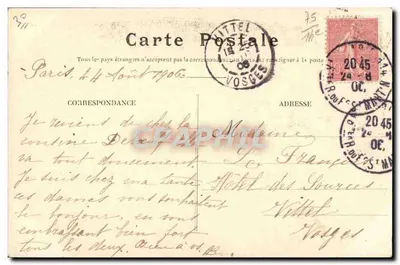 75
Carte Postale
VITTEL
VOSGES
Tous les pays étrangers n'acceptent pas la correspondance au recto
Paris, 24 Août 1906
CORRESPONDANCE
ADRESSE
20 45
24 8
06
20 45
24 8
06
Je reviens de chez la
cousine
va tout doucement.
Je suis chez ma tante
ces dames vous souhaitent
le bonjour, en vous
embrassant bien fort
tous les deux.
Madame
François
Hôtel des Sources
Vittel
Vosges